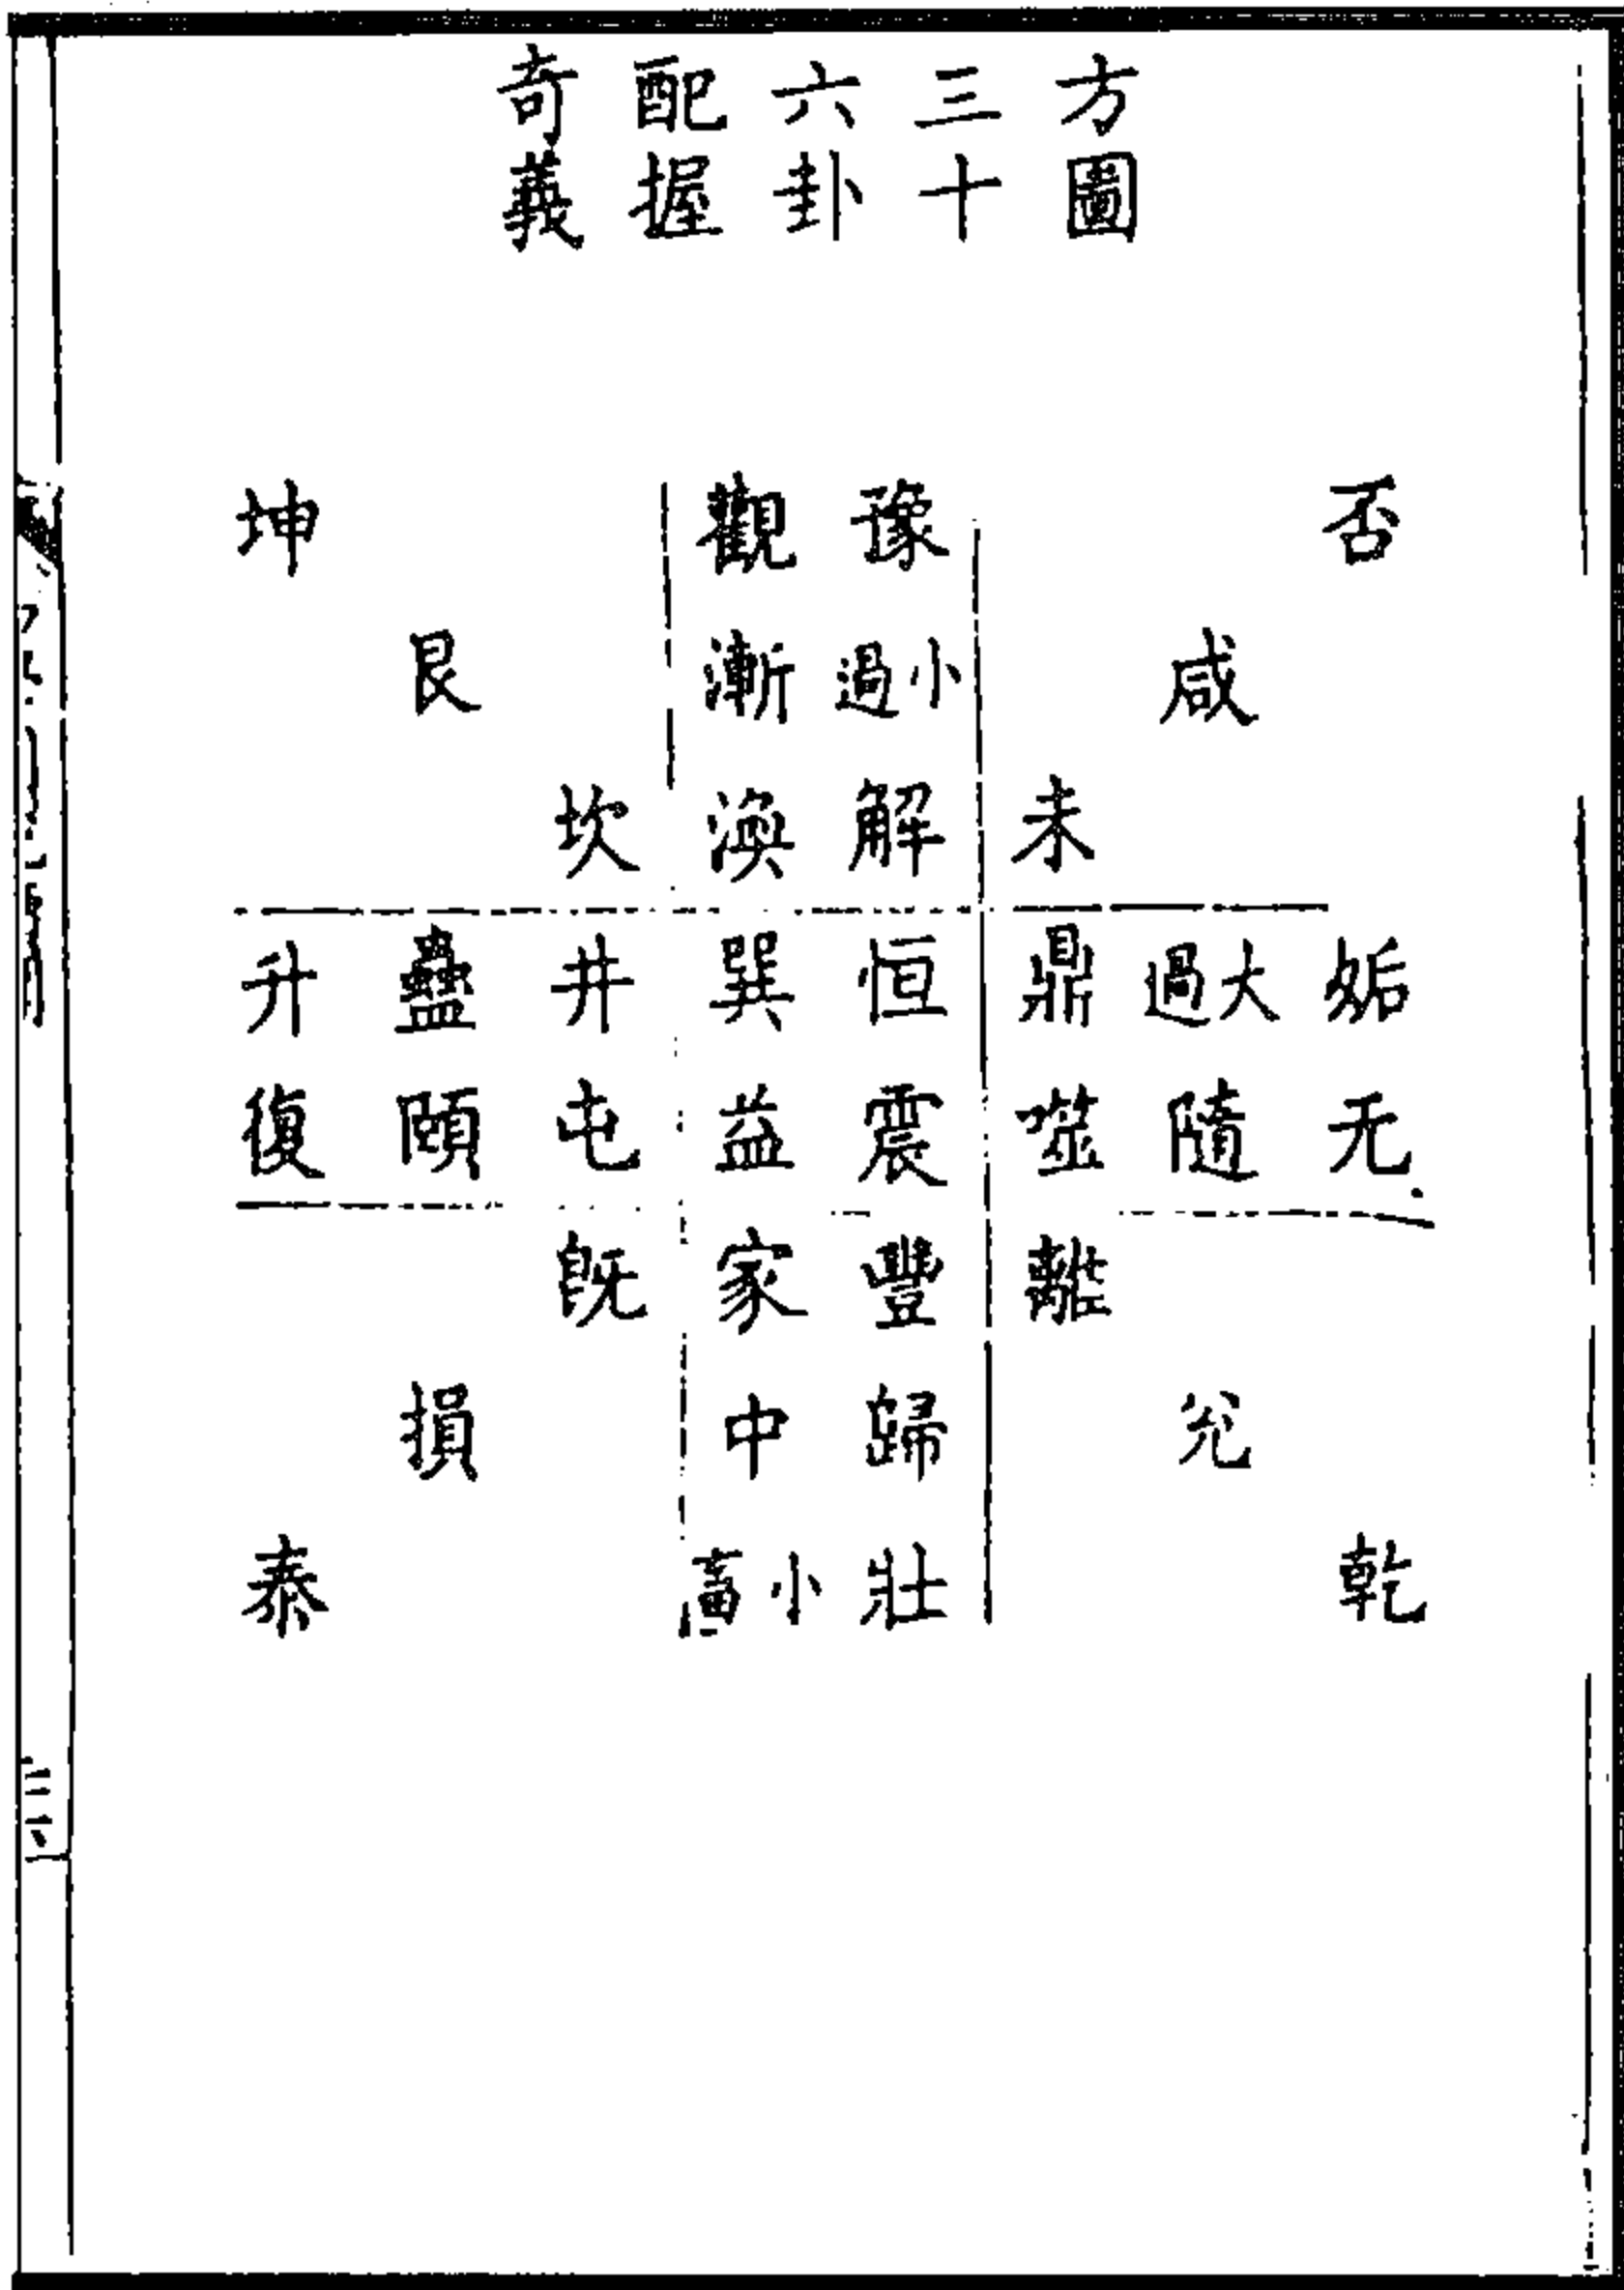 方圖
三十
六卦
配握
奇義
否 豫 觀 坤
咸 小過 漸 艮
未 解 渙 坎
姤 大過 鼎 恒 巽 井 蠱 升
无 隨 噬 震 益 屯 頤 復
離 豐 家 既
兌 歸 中 損
乾 壯 小畜 泰